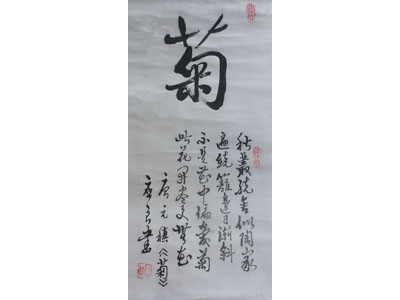 菊
秋丛绕舍似陶家
遍绕篱边日渐斜
不是花中偏爱菊
此花开尽更无花
唐元稹《菊》